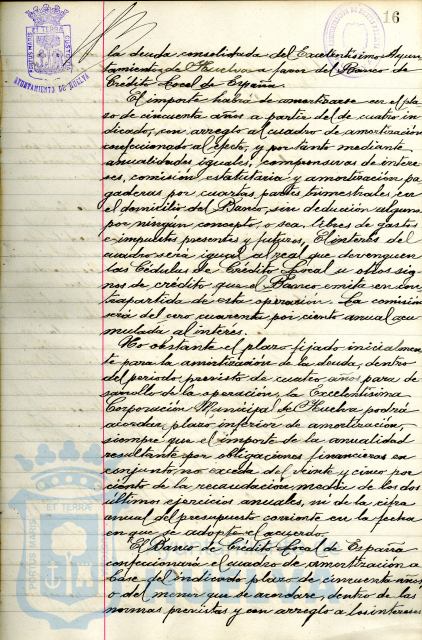 16
PORTUS MARIS ET TERRAE CUSTODIA
AYUNTAMIENTO DE HUELVA
la deuda consolidada del Excelentísimo Ayun-
tamiento de Huelva a favor del Banco de
Crédito Local de España.
El importe habrá de amortizarse en el pla-
zo de cincuenta años a partir del de cuatro in-
dicado, con arreglo al cuadro de amortización
confeccionado al efecto, y por tanto mediante
anualidades iguales, compensivas de intere-
ses, comisión estatutaria y amortización pa-
gaderas por cuartas partes trimestrales en
el domicilio del Banco, sin deducción alguna
por ningún concepto, o sea, libres de gastos
e impuestos presentes y futuros. El interés del
cuadro será igual al real que devenguen
las Cédulas de Crédito Local u otros sig-
nos de crédito que el Banco emita en con-
trapartida de esta operación. La comisión
será del cero cuarenta por ciento anual acu-
mulada al interés.
No obstante el plazo fijado inicialmen-
te para la amortización de la deuda, dentro
del periodo previsto de cuatro años para de-
sarrollo de la operación, la Excelentísima
Corporación Municipal de Huelva podrá
acordar plazo inferior de amortización,
siempre que el importe de la anualidad
resultante por obligaciones financieras en
conjunto no exceda del veinte y cinco por
ciento de la recaudación media de los dos
últimos ejercicios anuales, ni de la cifra
anual del presupuesto corriente en la fecha
en que se adopte el acuerdo.
El Banco de Crédito Local de España
confeccionará el cuadro de amortización a
base del indicado plazo de cincuenta años,
o del menor que se acordare, dentro de las
normas previstas y con arreglo a los intereses